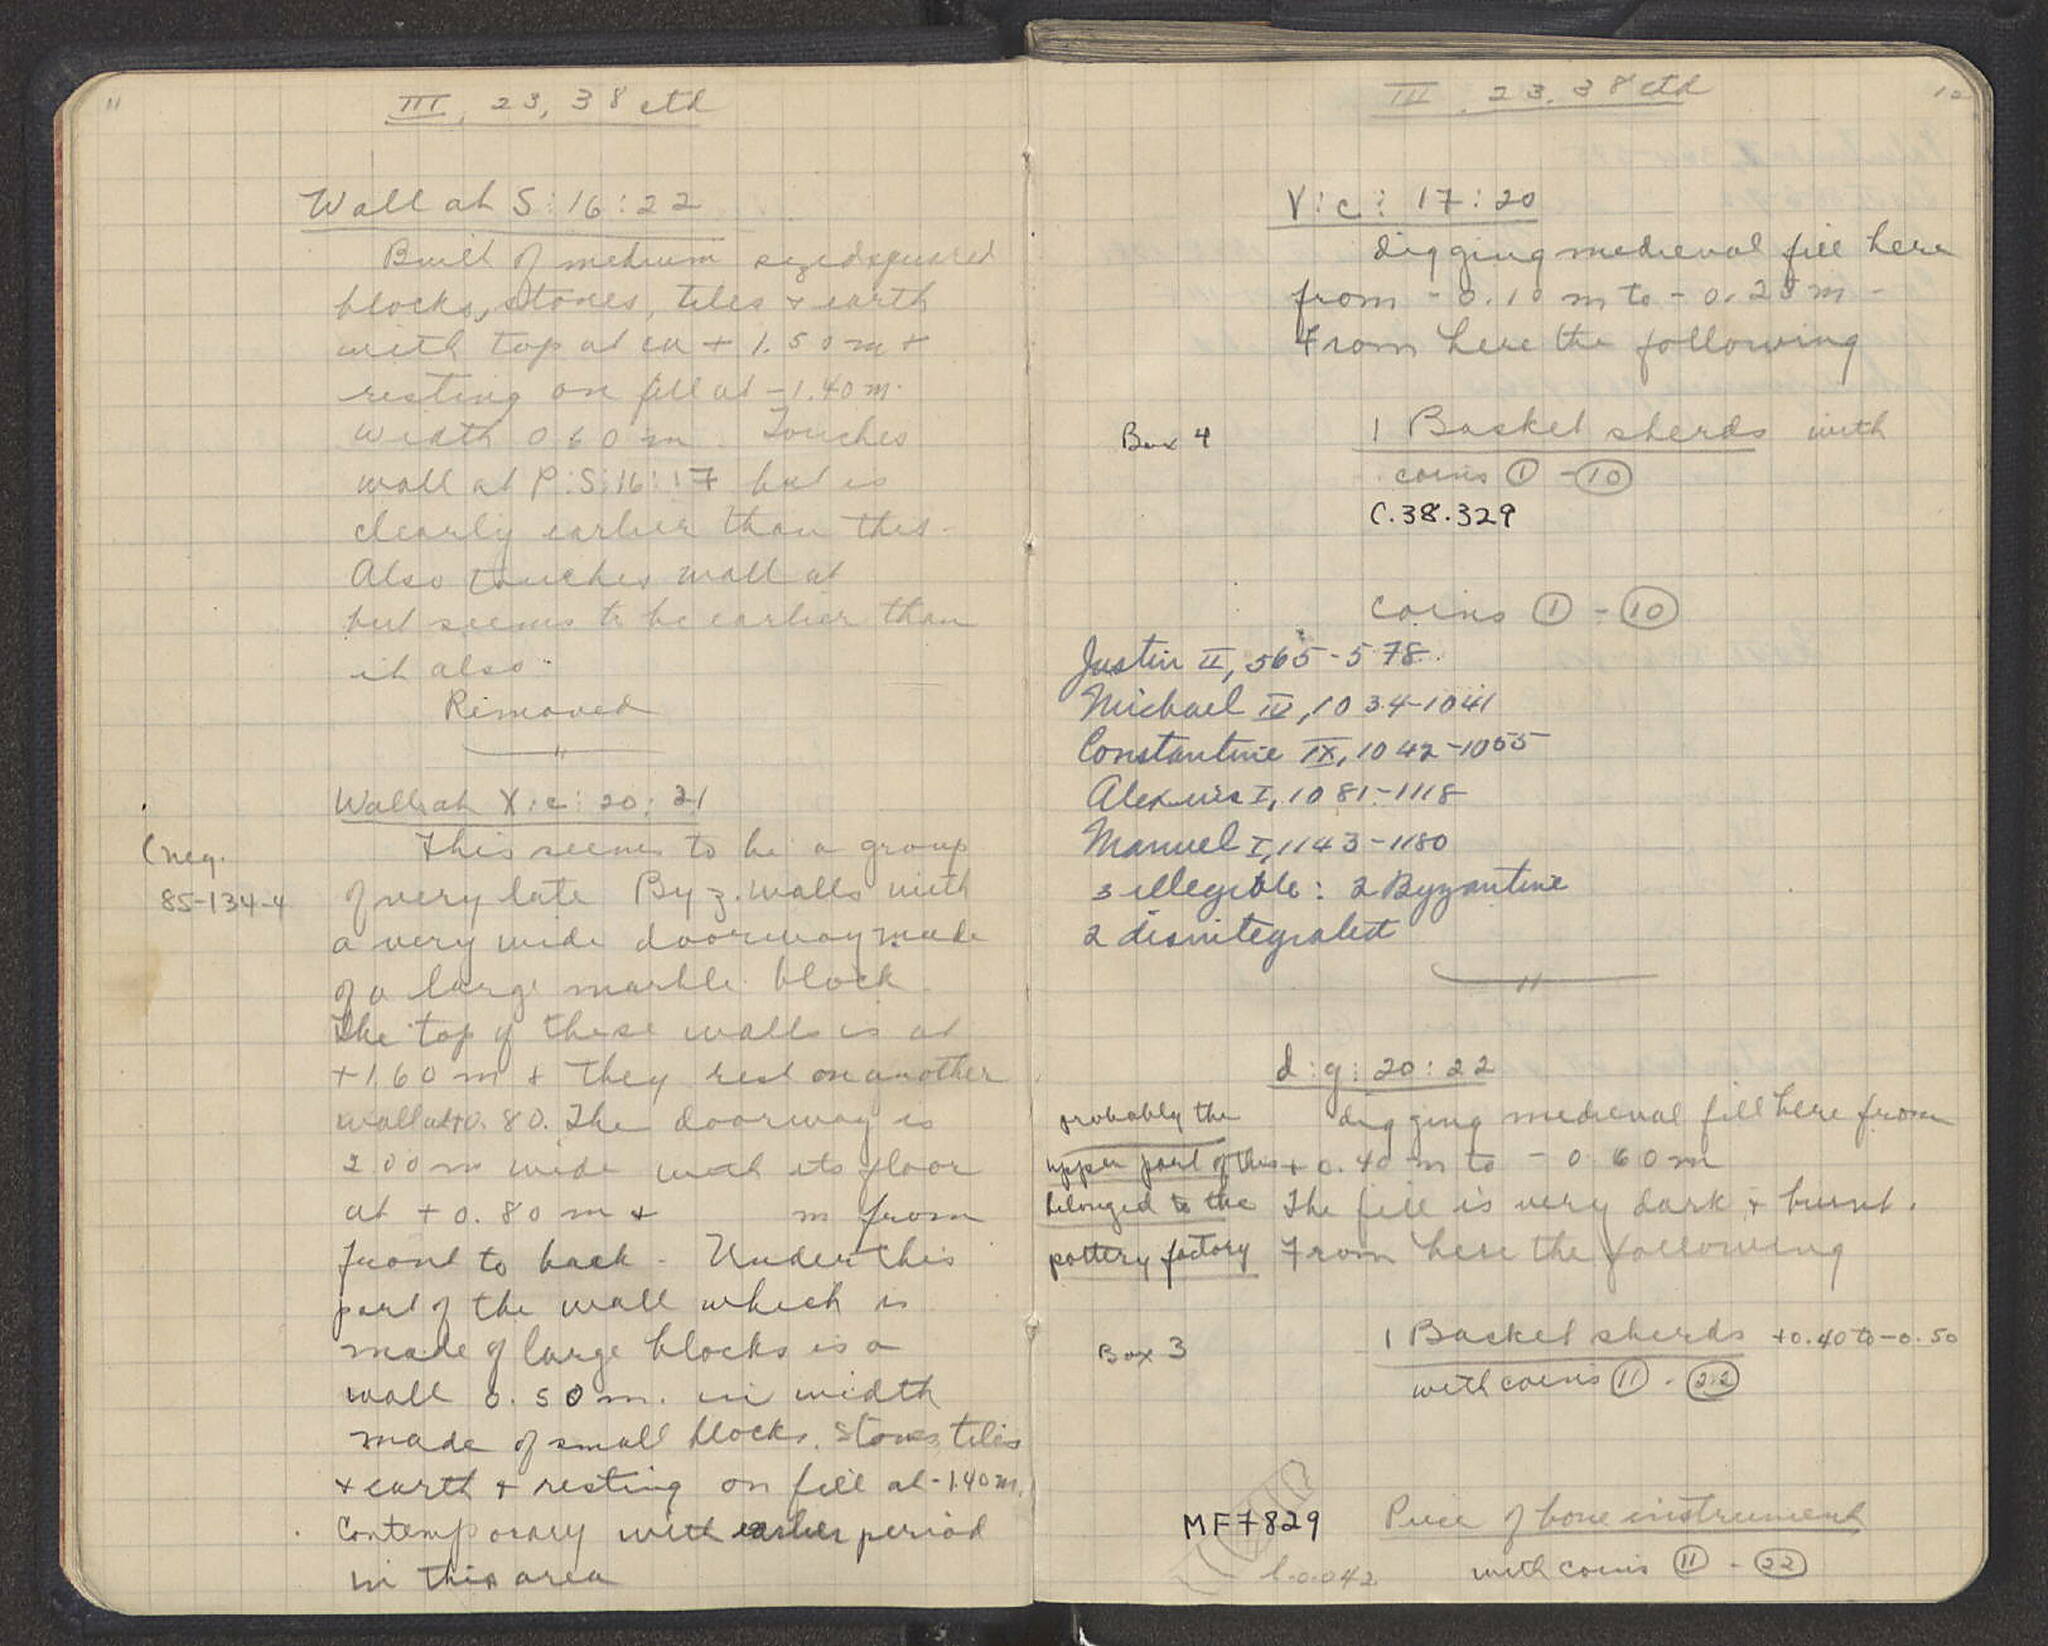 11
III, 23, 38 ctd
Wall at S:16:22
Built of medium sized squared
blocks, stones, tiles + earth
with top at ca + 1.50 m +
resting on fill at -1.40 m.
Width 0.60 m. Touches
wall at P:S:16:17 but is
clearly earlier than this.
Also touches wall at
but seems to be earlier than
it also.
Removed
"
Walls at X:c:20:21
(neg.
85-134-4
This seems to be a group
of very late Byz. walls with
a very wide doorway made
of a large marble block
The top of these walls is at
+1.60 m + they rest on another
wall at +0.80. The doorway is
2.00 m wide with its floor
at +0.80 m + m from
front to back. Under this
part of the wall which is
made of large blocks is a
wall 0.50 m. in width
made of small blocks, stones, tiles
+ earth + resting on fill at -1.40 m.
Contemporary with earlier period
in this area
12
III, 23, 38 ctd
V:c: 17:20
digging medieval fill here
from -0.10 m to -0.25 m -
From here the following
Box 4
1 Basket sherds with
coins ① - ⑩
C.38.329
coins ① - ⑩
Justin II, 565-578.
Michael IV, 1034-1041
Constantine IX, 1042-1055
Alexius I, 1081-1118
Manuel I, 1143-1180
3 illegible: 2 Byzantine
2 disintegrated
"
d:g:20:22
digging medieval fill here from
+0.40 m to -0.60 m
The fill is very dark + burnt.
From here the following
probably the
upper part of this
belonged to the
pottery factory
Box 3
1 Basket sherds +0.40 to -0.50
with coins ⑪ - ㉒
MF7829
Piece of bone instrument
with coins ⑪ - ㉒
l.0.042